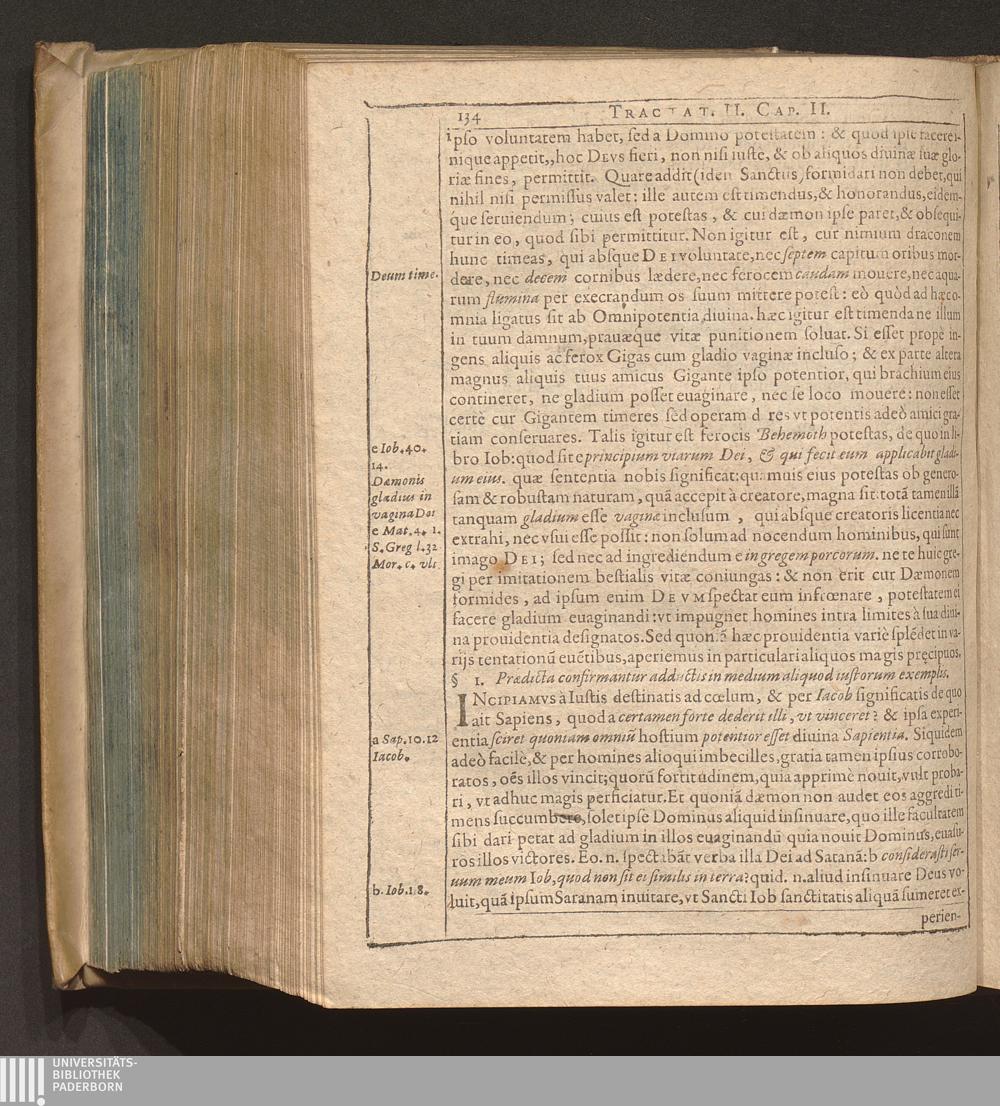 134
TRACTAT. II. CAP. II.
ipso voluntatem habet, sed a Domino potestatem : & quod ipse facere i-
nique appetit,, hoc DEVS fieri, non nisi iustè, & ob aliquos diuinæ suæ glo-
riæ fines, permittit. Quare addit (idem Sanctus) formidari non debet, qui
nihil nisi permissus valet: ille autem est timendus, & honorandus, eidem-
q́ue seruiendum; cuius est potestas, & cui dæmon ipse paret, & obsequi-
tur in eo, quod sibi permittitur. Non igitur est, cur nimium draconem
hunc timeas, qui absque DEI voluntate, nec septem capitum oribus mor-
Deum time.
dere, nec decem cornibus lædere, nec ferocem caudam mouere, nec aqua-
rum flumina per execrandum os suum mittere potest: eò quòd ad hæc o-
mnia ligatus sit ab Omnipotentia diuina. hæc igitur est timenda ne illum
in tuum damnum, prauæque vitæ punitionem soluat. Si esset propè in-
gens aliquis ac ferox Gigas cum gladio vaginæ incluso; & ex parte altera
magnus aliquis tuus amicus Gigante ipso potentior, qui brachium eius
contineret, ne gladium posset euaginare, nec se loco mouere: non esset
certè cur Gigantem timeres sed operam d res vt potentis adeò amici gra-
tiam conseruares. Talis igitur est ferocis Behemoth potestas, de quo in li-
e Iob. 40.
14.
bro Iob: quod sit e principium viarum Dei, & qui fecit eum applicabit gladi-
Dæmonis
um eius. quæ sententia nobis significat: quamuis eius potestas ob genero-
gladius in
sam & robustam naturam, quā accepit à creatore, magna sit: totā tamen illā
vagina Dei
tanquam gladium esse vaginæ inclusum, qui absque creatoris licentia nec
e Mat. 4. 1.
extrahi, nec vsui esse possit: non solum ad nocendum hominibus, qui sunt
S. Greg l. 32
imago DEI; sed nec ad ingrediendum e in gregem porcorum. ne te huic gre-
Mor. c. vlt
gi per imitationem bestialis vitæ coniungas: & non erit cur Dæmonem
formides, ad ipsum enim DEVM spectat eum infrœnare, potestatem ei
facere gladium euaginandi: vt impugnet homines intra limites à sua diui-
na prouidentia designatos. Sed quoniā hæc prouidentia variè splēdet in va-
rijs tentationū euētibus, aperiemus in particulari aliquos magis pręcipuos.
§ 1. Prædicta confirmantur adductis in medium aliquod iustorum exemplis.
INCIPIAMVS à Iustis destinatis ad cœlum, & per Iacob significatis de quo
ait Sapiens, quod a certamen forte dederit illi, vt vinceret? & ipsa experi-
a Sap. 10. 12
entia sciret quoniam omniū hostium potentior esset diuina Sapientia. Siquidem
Iacob.
adeò facilè, & per homines alioqui imbecilles, gratia tamen ipsius corrobo-
ratos, oēs illos vincit; quorū fortitudinem, quia apprimè nouit, vult proba-
ri, vt adhuc magis perficiatur. Et quoniā dæmon non audet eos aggredi ti-
mens succumbere, solet ipse Dominus aliquid insinuare, quo ille facultatem
sibi dari petat ad gladium in illos euaginandū quia nouit Dominus, euasu-
ros illos victores. Eo. n. spectabāt verba illa Dei ad Satanā: b considerasti ser-
b. Iob. 1. 8.
uum meum Iob, quod non sit ei similis in terra? quid. n. aliud insinuare Deus vo-
luit, quā ipsum Satanam inuitare, vt Sancti Iob sanctitatis aliquā sumeret ex-
perien-
UNIVERSITÄTS-
BIBLIOTHEK
PADERBORN